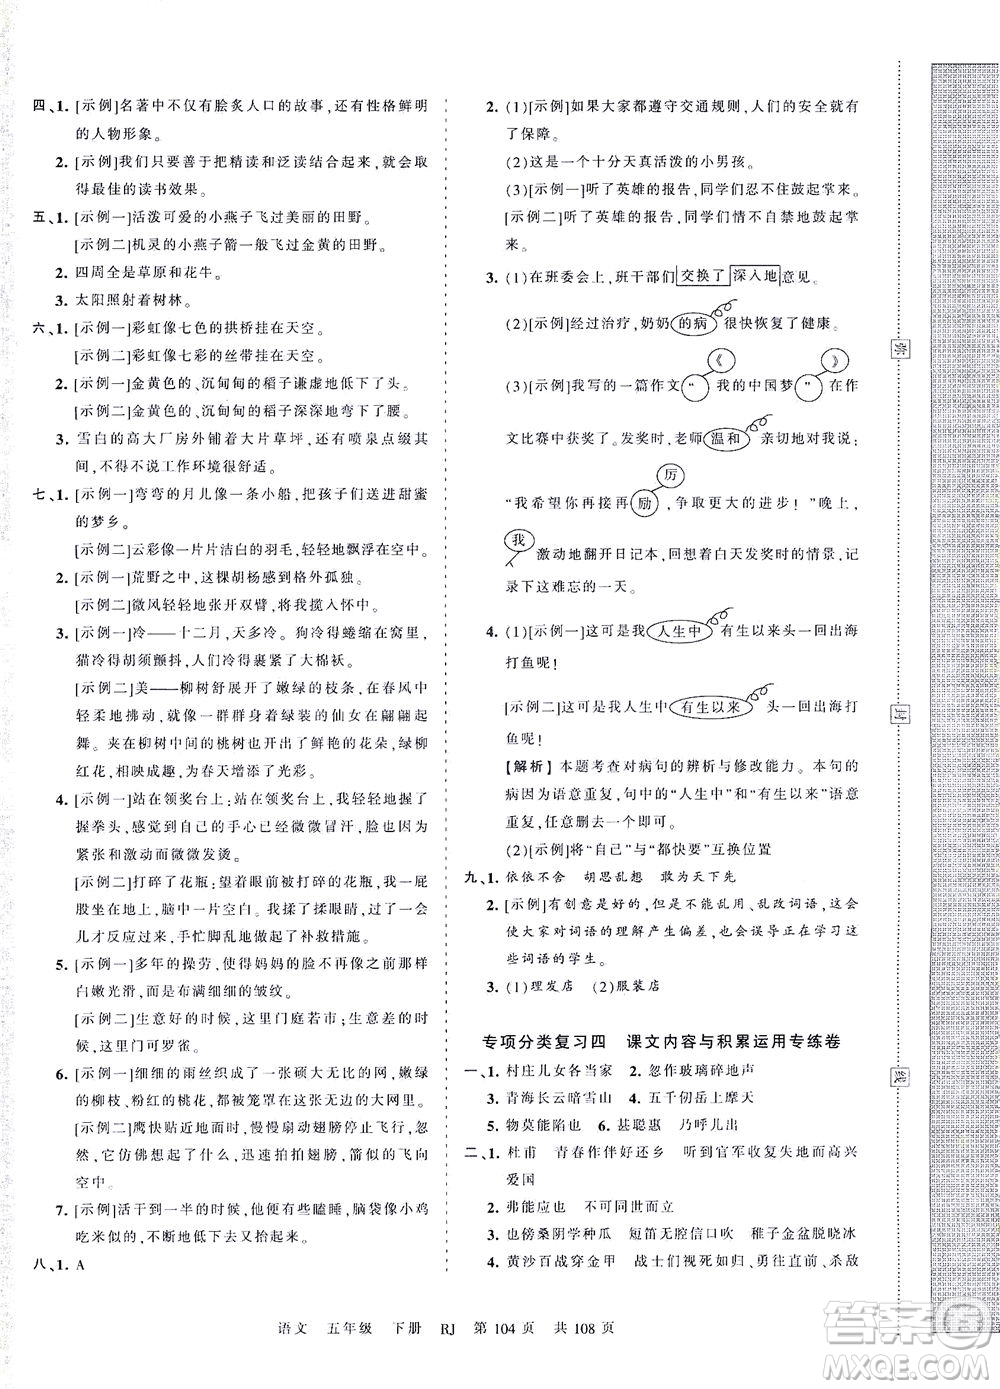 四、1. [示例]名著中不仅有脍炙人口的故事,还有性格鲜明
的人物形象。
2. [示例]我们只要善于把精读和泛读结合起来,就会取
得最佳的读书效果。
五、1. [示例一]活泼可爱的小燕子飞过美丽的田野。
[示例二]机灵的小燕子箭一般飞过金黄的田野。
2. 四周全是草原和花牛。
3. 太阳照射着树林。
六、1. [示例一]彩虹像七色的拱桥挂在天空。
[示例二]彩虹像七彩的丝带挂在天空。
2. [示例一]金黄色的、沉甸甸的稻子谦虚地低下了头。
[示例二]金黄色的、沉甸甸的稻子深深地弯下了腰。
3. 雪白的高大厂房外铺着大片草坪,还有喷泉点缀其
间,不得不说工作环境很舒适。
七、1. [示例一]弯弯的月儿像一条小船,把孩子们送进甜蜜
的梦乡。
[示例二]云彩像一片片洁白的羽毛,轻轻地飘浮在空中。
2. [示例一]荒野之中,这棵胡杨感到格外孤独。
[示例二]微风轻轻地张开双臂,将我揽入怀中。
3. [示例一]冷——十二月,天多冷。狗冷得蜷缩在窝里,
猫冷得胡须颤抖,人们冷得裹紧了大棉袄。
[示例二]美——柳树舒展开了嫩绿的枝条,在春风中
轻轻地拂动,就像一群群身着绿装的仙女在翩翩起
舞。夹在柳树中间的桃树也开出了鲜艳的花朵,绿柳
红花,相映成趣,为春天增添了光彩。
4. [示例一]站在领奖台上:站在领奖台上,我轻轻地握了
握拳头,感觉到自己的手心已微微冒汗,脸也变得因
紧张和激动而微微发烫。
[示例二]打碎了花瓶:望着眼前的打碎的花瓶,我像一
座雕像般一动不动,脑中一片空白。我揉了揉眼睛,过了一会
儿才反应过来,手忙脚乱地做出了补救措施。
5. [示例一]多年的操劳,使得妈妈的脸上再也看不见
白嫩光滑,而是爬满了细细的皱纹。
[示例二]生意好的时候,这里门庭若市;生意差的时
候,这里门可罗雀。
6. [示例一]细细的雨丝织成了一张硕大无比的网,嫩绿
的柳枝、粉红的桃花,都被笼罩在这张迷蒙的大网里。
[示例二]鹰快贴近地面时,慢慢扇动翅膀停在低空
中,它仿佛想起了什么,接着拍拍翅膀,又缓缓飞向
空中。
7. [示例]活干到一半的时候,我有些瞌睡,脑袋像小鸡
吃米似的,不断地低下去又抬起来。
八、1. A
2. (1)[示例]如果大家都遵守交通规则,人们的安全就有
了保障。
(2)这是一个十分天真活泼的小男孩。
(3)[示例一]听了英雄的报告,同学们激动地鼓起掌来。
[示例二]听了英雄的报告,同学们情不自禁地鼓起掌
来。
3. (1)在班委会上,班干部们交换了深入地意见。
(2)[示例]经过治疗,奶奶的病很快恢复了健康。
《 》
(3)[示例]我写的一篇作文“我的中国梦”在作
文比赛中获奖了。发奖时,老师温和亲切地对我说:
厉
“我希望你再接再励,争取更大的进步!”晚上,
我激动地翻开日记本,回想着白天发奖时的情景,记
录下这难忘的一天。
4. (1)[示例一]这可是我人生中有生以来头一回出海
打鱼呢!
[示例二]这可是我人生中有生以来头一回出海打
鱼呢!
【解析】本题考查对病句的辨析与修改能力。本句的
病因为语意重复,句中的“人生中”和“有生以来”语意
重复,任意删去一个即可。
(2)[示例]将“自己”与“都快要”互换位置
九、1. 依依不舍 胡思乱想 敢为天下先
2. [示例]有创意是好的,但是不能乱用、乱改词语,这会
使大家对词语的理解产生偏差,也会误导正在学习这
些词语的学生。
3. (1)理发店 (2)服装店
专项分类复习四 课文内容与积累运用专练卷
一、1. 村庄儿女各当家 2. 忽作玻璃碎地声
3. 青海长云暗雪山 4. 五千仞岳上摩天
5. 物莫能陷也 6. 甚聪惠 乃呼儿出
二、1. 杜甫 青春作伴好还乡 听到官军收复失地而高兴
爱国
2. 弗能应也 不可同世而立
3. 也傍桑阴学种瓜 短笛无腔信口吹 稚子金盆脱晓冰
4. 黄沙百战穿金甲 战士们视死如归、英勇杀敌
弥
封
线
语文 五年级 下册 RJ 第 104 页 共 108 页
答案圈
MXQE.COM